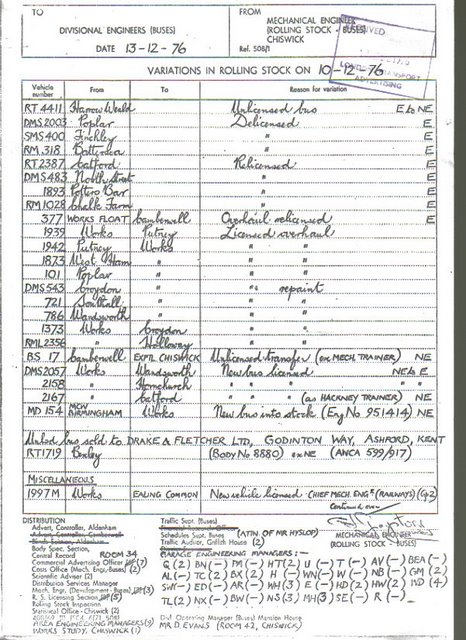 TO
FROM
DIVISIONAL ENGINEERS (BUSES)
MECHANICAL ENGINEER
(ROLLING STOCK - BUSES)
CHISWICK
DATE 13-12-76
Ref. 508/1
VARIATIONS IN ROLLING STOCK ON 10-12-76
ADVERTISING
Vehicle number From To Reason for variation
RT 4411 Harrow Weald Unlicensed bus E to NE
DMS 2003 Poplar Delicensed E
SMS 400 Finchley " E
RM 318 Battersea " E
RT 2387 Catford Relicensed E
DMS 483 North Street " E
1893 Potters Bar " E
RM 1028 Chalk Farm " E
377 WORKS FLOAT Camberwell Overhaul relicensed E
1939 Works Putney Licensed overhaul
1942 Putney Works " "
1873 West Ham " " "
101 Poplar " " "
DMS 543 Croydon " " repaint
721 Southall " " "
786 Wandsworth " " "
1373 Works Croydon " "
RML 2356 " Holloway " "
BS 17 Camberwell EXPTL CHISWICK Unlicensed transfer (ex MECH. TRAINER) NE
DMS 2057 Works Wandsworth New bus licensed NE to E
2158 " Hornchurch " " " "
2167 " Catford " " (as HACKNEY TRAINER) NE
MD 154 MCW BIRMINGHAM Works New bus into stock (Eng No 951414) NE
Unlicd bus sold to DRAKE & FLETCHER LTD, GODINTON WAY, ASHFORD, KENT
RT1719 Bexley (Body No 8880) ex NE (ANCA 599/917)
MISCELLANEOUS
1997 M Works EALING COMMON New vehicle licensed CHIEF MECH. ENGR (RAILWAYS) (G2)
Continued over
MECHANICAL ENGINEER
(ROLLING STOCK - BUSES)
DISTRIBUTION
Advert. Controller, Aldenham
Body Spec. Section,
Central Record ROOM 34
Commercial Advertising Officer (7)
Scientific Adviser (2)
Distribution Services Manager
Mech. Engr. (Development - Buses) (3)
R. S. Licensing Section (5)
Rolling Stock Inspection
Statistical Office - Chiswick (2)
AREA ENGINEERING MANAGERS (9)
WORKS STUDY, CHISWICK (1)
Traffic Supt. (Buses)
Schedules Supt. (Buses) (ATTN. OF MR HYSLOP)
Traffic Auditor, Griffith House (2)
GARAGE ENGINEERING MANAGERS:-
Q (2) BN (-) PM (-) HT (2) U (-) T (-) AV (-) BEA (-)
AL (-) TC (2) BX (2) H (-) WN (-) W (-) NB (-) GM (2)
SW (-) ED (-) AR (-) WH (3) E (-) ED (2) HW (2) WD (4)
TL (2) NX (-) BW (-) NS (3) MH (3) SE (-) R (-)
Div Operating Manager (Buses) Mansion House
MR D. EVANS (ROOM 42, CHISWICK)